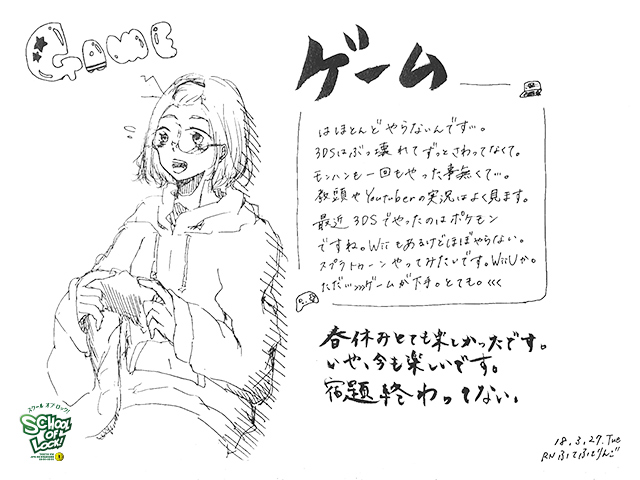 GAME
ゲーム
はほとんどやらないんです…。
3DSはぶっ壊れてずっとさわってなくて。
モンハンも一回もやった事無くて…。
教頭やYoutuberの実況はよく見ます。
最近3DSでやったのはポケモン
ですね。Wiiもあるけどほぼやらない。
スプラトゥーンやってみたいです。WiiUか。
ただいゲームが下手。とても。<<<
春休みとても楽しかったです。
いや、今も楽しいです。
宿題終わってない。
スクール オブ ロック!
SCHOOL OF LOCK!
18.3.27.Tue
RN ふてふてりんご